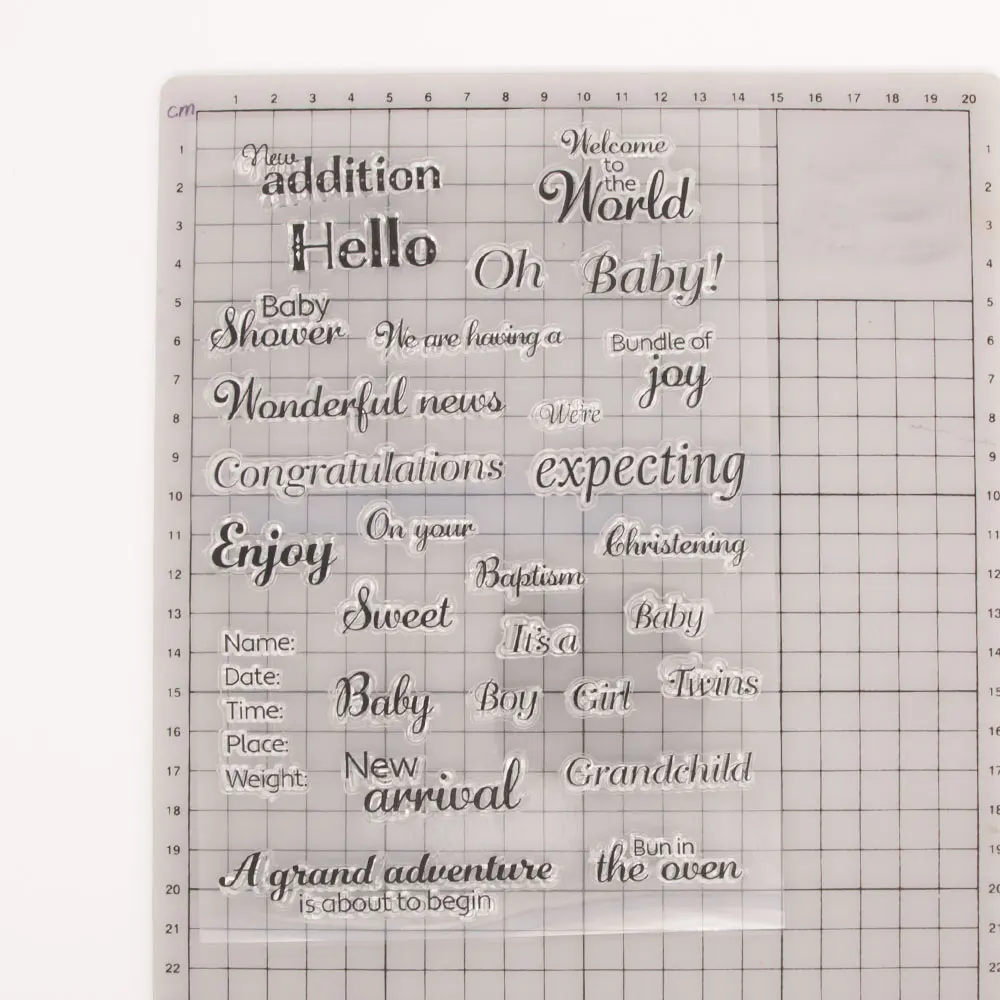 1 2 3 4 5 6 7 8 9 10 11 12 13 14 15 16 17 18 19 20
cm
New
addition
Welcome
to
the
World
Hello
Oh Baby!
Baby
Shower
We are having a
Bundle of
joy
Wonderful news
We're
Congratulations
expecting
Enjoy
On your
Christening
Baptism
Sweet
Baby
It's a
Name:
Date:
Time:
Place:
Weight:
Baby
Boy
Girl
Twins
New
arrival
Grandchild
A grand adventure
is about to begin
Bun in
the oven
1
2
3
4
5
6
7
8
9
10
11
12
13
14
15
16
17
18
19
20
21
22
1
2
3
4
5
6
7
8
9